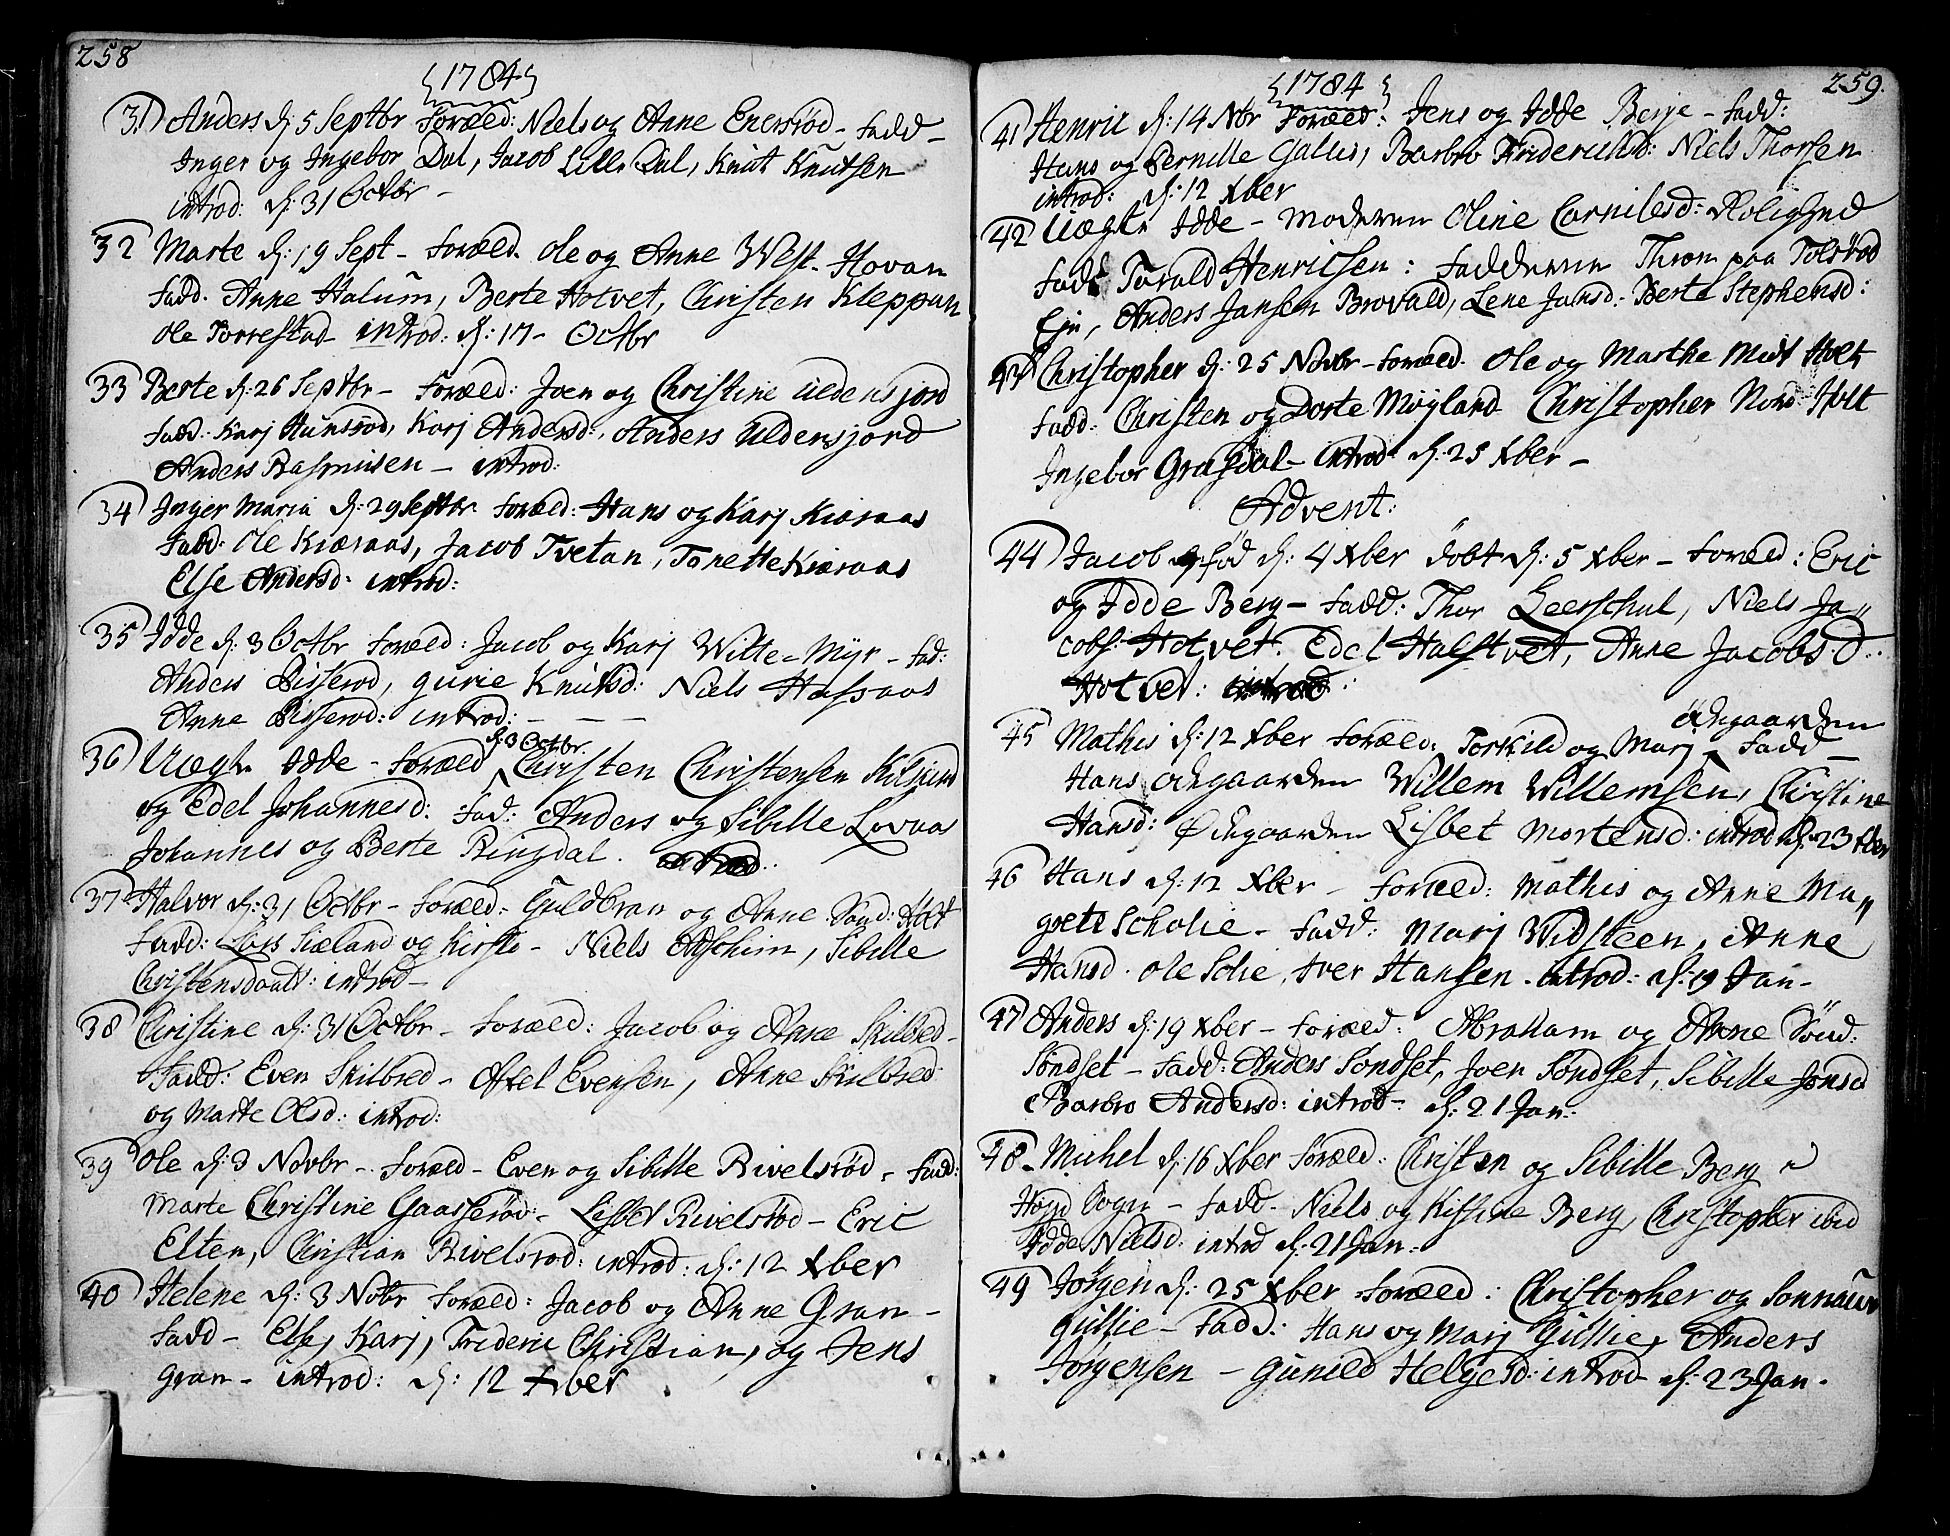 258
1784
31) Anders d: 5 Septbr Foræld: Niels og Anne Enersrød - Fadd -
Inger og Ingebor Dal, Jacob Lille Dal, Knut Knutsen
introd: d: 31 Octbr -
32 Marte d: 19 Sept - Foræld. Ole og Anne West-Hovan
Fadd. Anne Halum, Berte Hotvet, Christen Kleppan
Ole Torrestad introd: d: 17 - Octbr
33 Berte d: 26 Septbr - Foræld: Joen og Christine Uldensjord
Fadd: Karj Hunsrød, Karj Andersd:, Anders Uldensjord
Anders Rasmusen - introd:
34 Inger Maria d: 29 Septbr Foræld: Hans og Karj Kiæraas
Fadd: Ole Kiæraas, Jacob Tvetan, Tonette Kiæraas
Else Andersd: introd:
35 Idde d: 3 Octbr Foræld: Jacob og Karj Witte-Myr - Fad:
Anders Bisserød, Gurie Knutsd: Niels Hassaas
Anne Bisserød: introd: - - -
d: 3 Octbr.
36 Uægte Idde - Foræld Christen Christensen
og Edel Johannesd: Fad: Anders og Sibille Lovaas
Johannes og Berte Ringdal.
37 Halvor d: 31 Octbr - Foræld: Guldbran og Anne Sønd: Holt
Fadd: Lars Siæland og Kirsti - Niels Askhim, Sibille
Christensdaatt: introd -
38 Christine d: 31 Octbr - Foræld: Jacob og Anne Skilbred -
Fadd: Even Skilbred - Axel Evensen, Anne Skilbred
og Marte Olsd: introd:
39 Ole d: 3 Novbr - Foræld - Even og Sibille Rivelsrød - Fad:
Marte Christine Gaasserød - Lisbet Rivelsrød - Eric
Elten, Christian Rivelsrød: introd: d: 12 Xber
40 Helene d: 3 Nobr Foræld: Jacob og Anne Gran -
Fadd - Else, Karj, Frideric Christian, og Jens
Gran - introd: d: 12 Xber
259.
1784
41 Henric d: 14 Nbr Foræld: Jens og Idde Berje - Fadd:
Hans og Pernille Gallis, Barbro Fridericksd: Niels Thorsen
introd: d: 12 Xber
42 Uægte Idde - Moderen Oline Cornilesd: Rolighed
Fad: Torald Henricsen: Fadderen Thron paa Tolsrød
Eje, Anders Jansen Brovald, Lene Jansd: Berte Stephensd:
43 Christopher d: 25 Novbr - Foræld. Ole og Marthe Midt Holt
Fadd: Christen og Dorte Møyland Christopher Nord-Holt
Ingebor Grasdal - introd: d: 25 Xber -
Advent:
44 Jacob fød d: 4 Xber døbt d: 5 Xber - Foræld: Eric
og Idde Berg - Fadd: Thor Leerschul, Niels Ja„
cobs: Hotvet. Edel Halstvet, Anne Jacobs:D.
Hotvet:
Ødegaarden
45 Mathis d: 12 Xber Foræld: Torkild og Marj - Fadd -
Hans Ødegaarden Willem Willemsen, Christine
Hansd: Ødegaarden Lisbet Mortensd: introd d: 23 Xber
46 Hans d: 12 Xber - Foræld: Mathis og Anne Ma„
grete Scholie - Fadd: Marj Widsteen, Anne
Hansd. Ole Solie, Iver Hansen. introd: d: 19 Jan -
47 Anders d: 19 Xber - Foræld: Abraham og Anne Sønd:
Søndset - Fadd: Anders Søndset, Joen Søndset, Sibille Jonsd
Barbro Andersd: introd - d: 21 Jan.
48 - Michel d: 16 Xber Foræld: Christen og Sibille Berg
Højd Sogn - Fadd. Niels og Kissine Berg, Christopher ibid
Idde Nielsd: introd d: 21 Jan -
49 Jørgen d: 25 Xber Foræld: Christopher og Sonnauv
Gullie - Fadd: Hans og Marj Gullie, Anders
Jørgensen - Gunild Helgesd: introd d: 23 Jan.